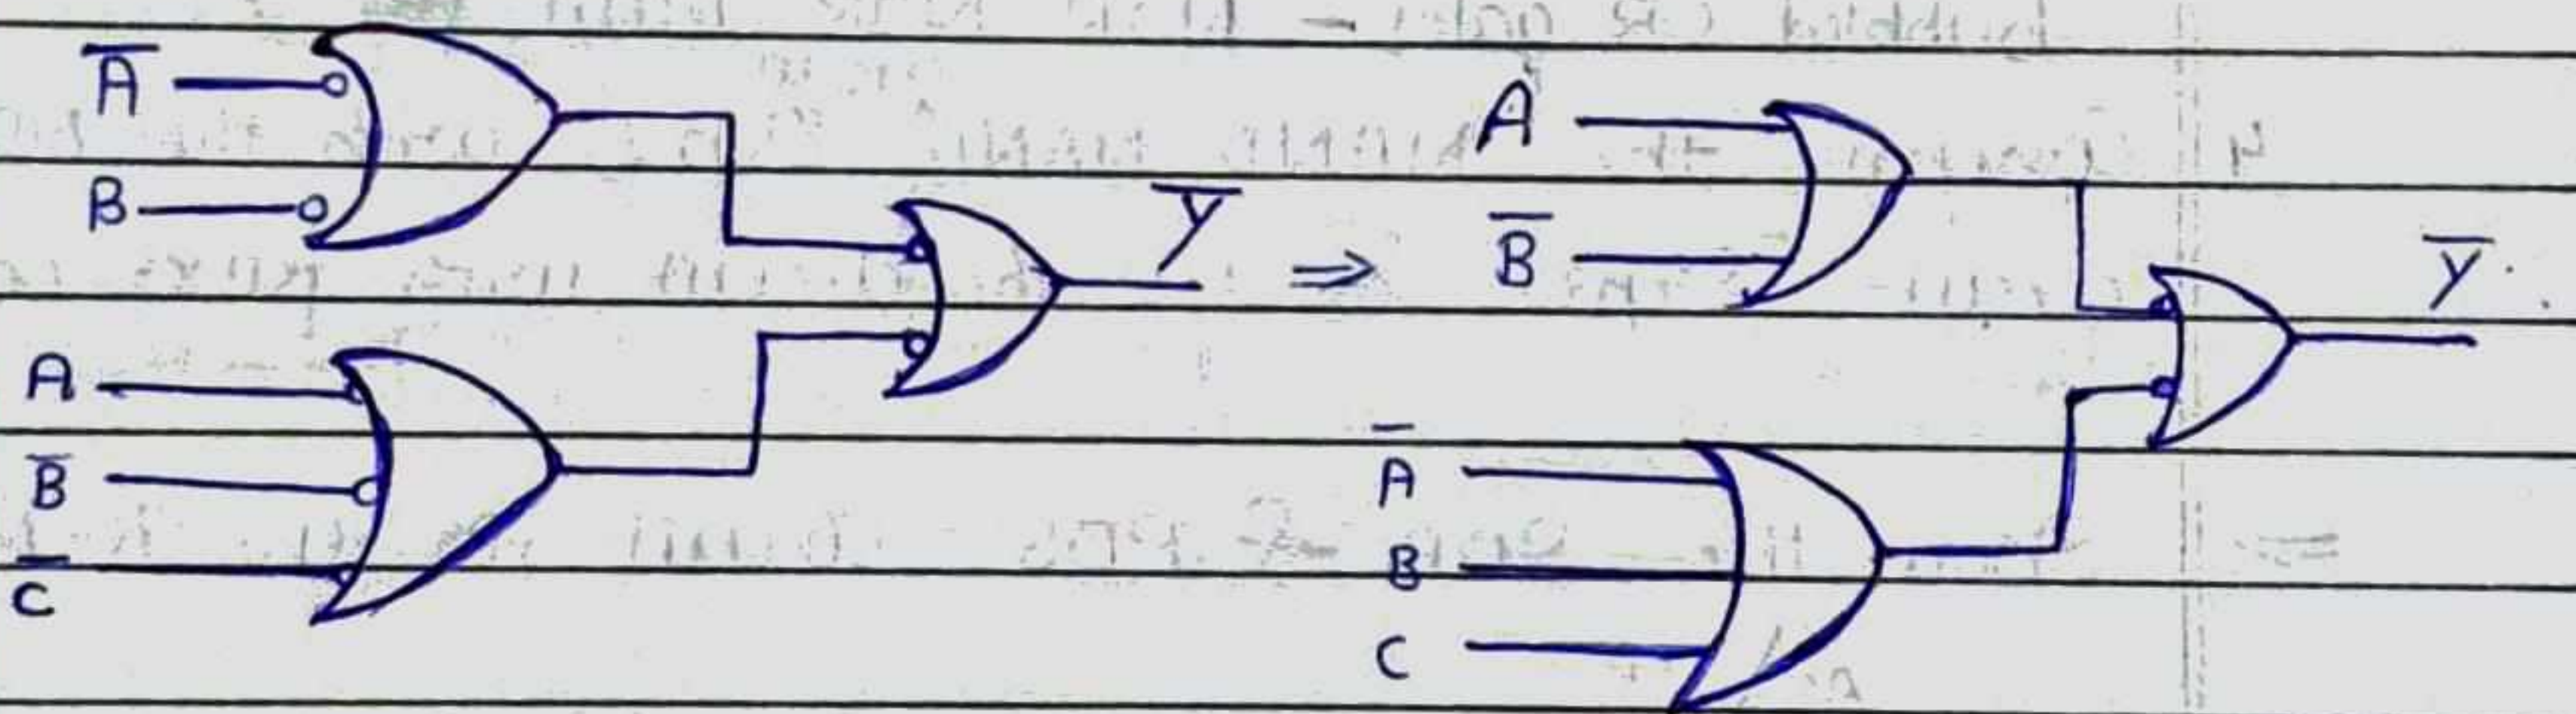 A̅
B
A
B̅
C̅
Y̅
⇒
A
B̅
A̅
B
C
Y̅.